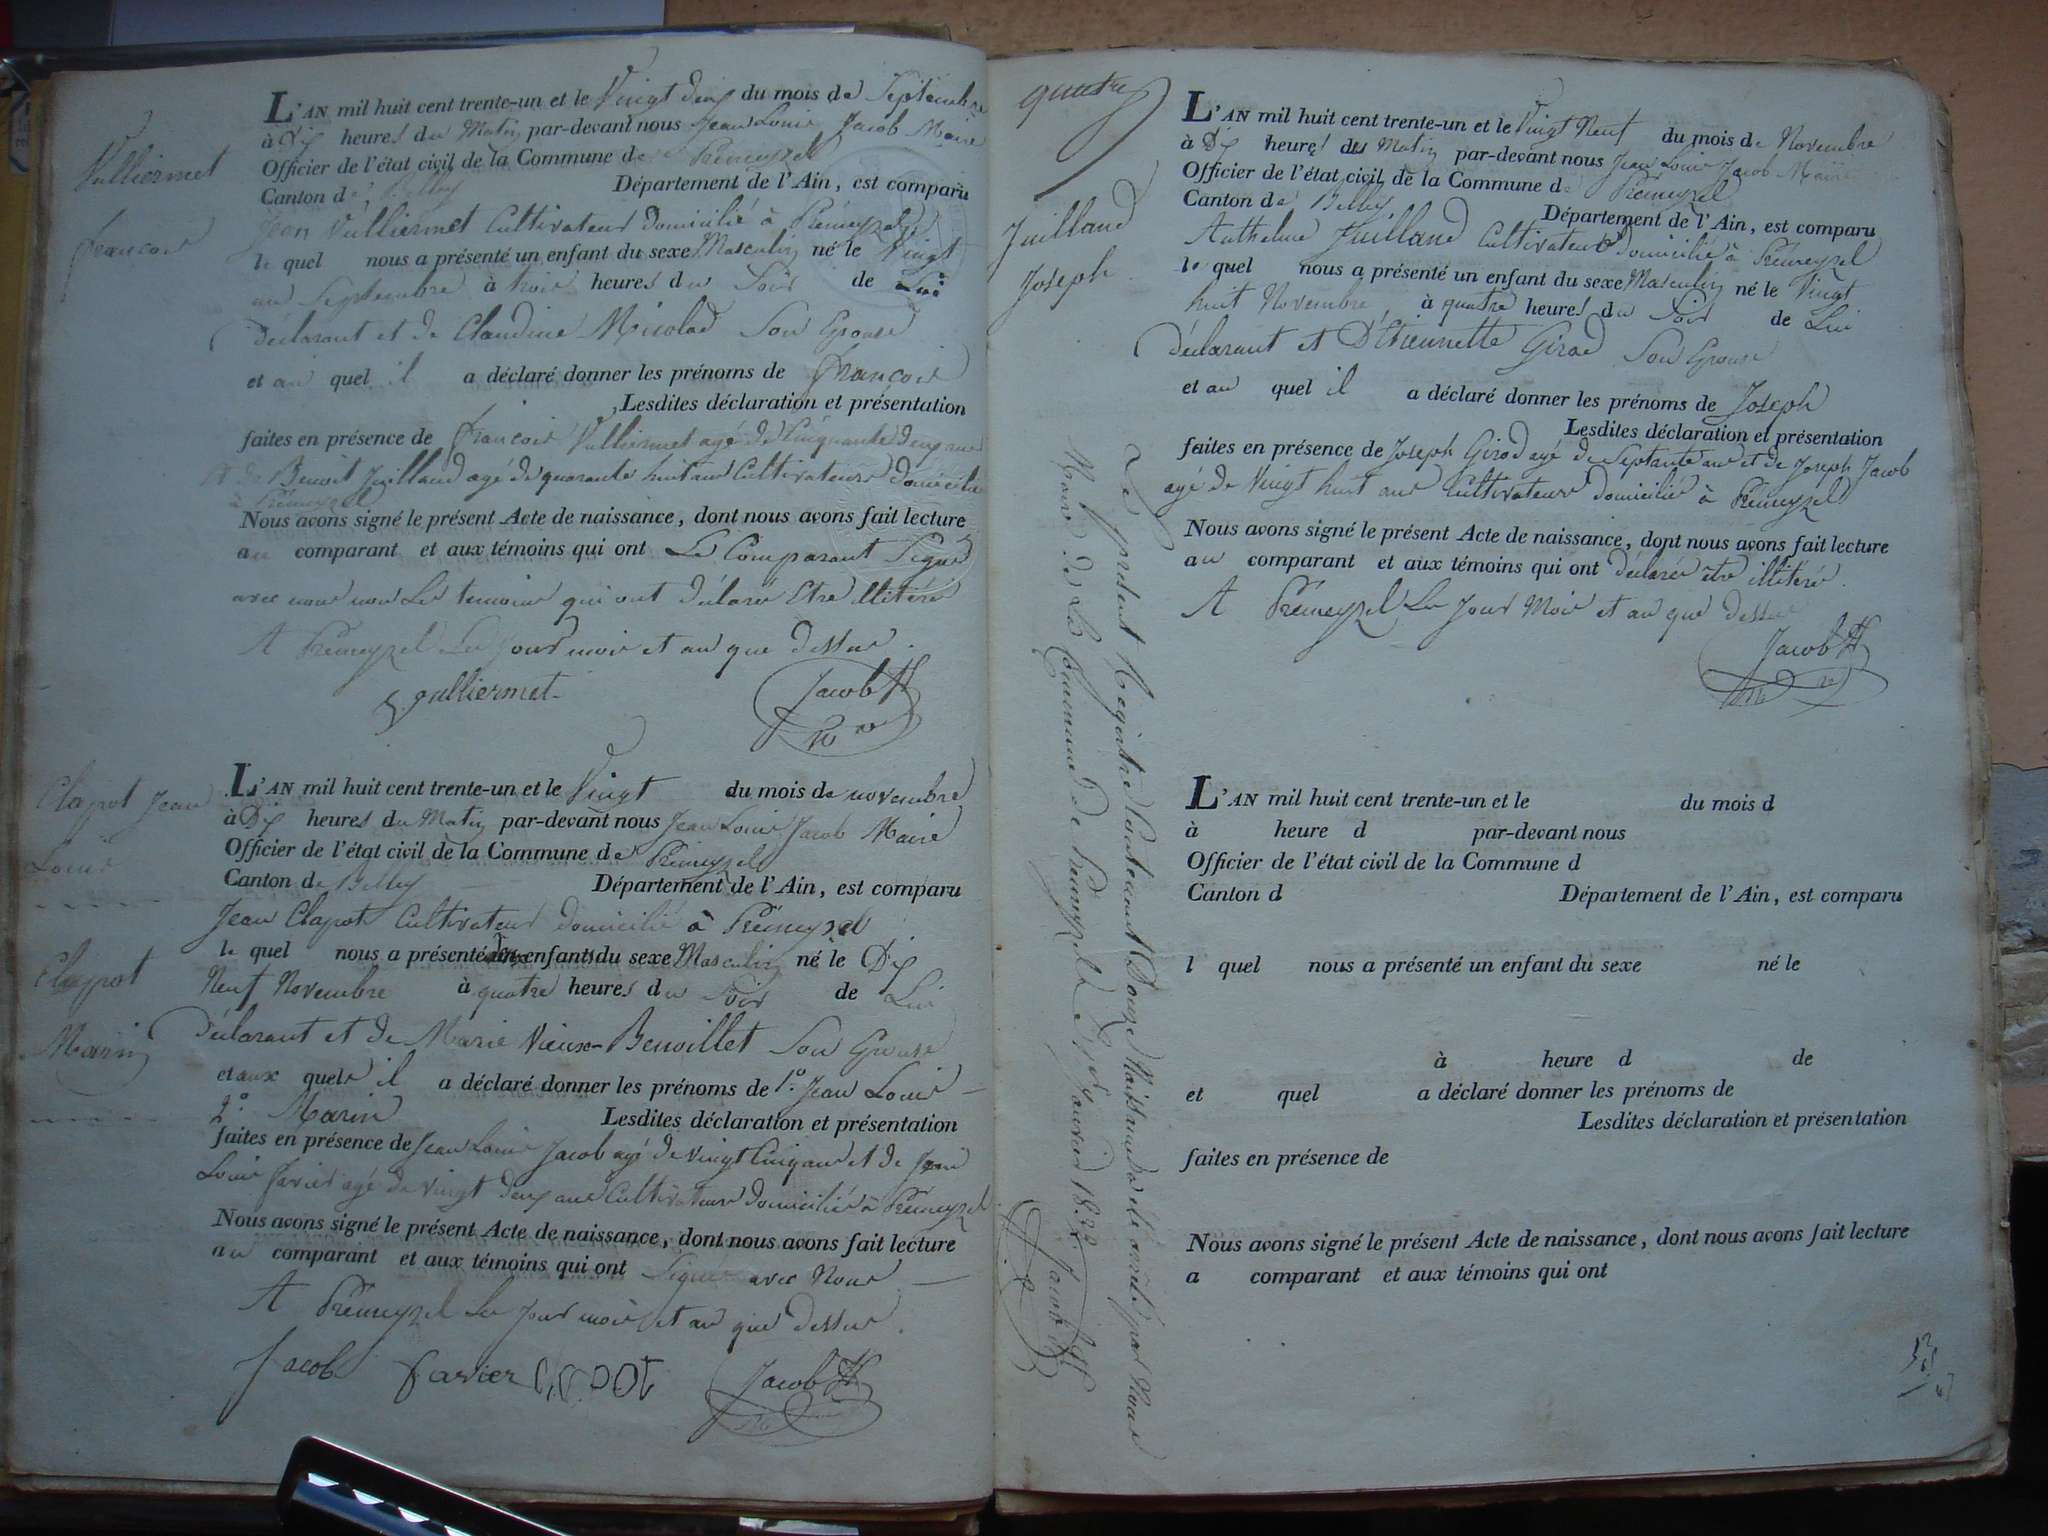 Vulliermet
françois
L'AN mil huit cent trente-un et le Vingt deux du mois de Septembre
à Dix heures du Matin par-devant nous Jean Louis Jacob Maire
Officier de l'état civil de la Commune de Prémeyzel
Canton de Belley Département de l'Ain, est comparu
Jean Vulliermet Cultivateur domicilié à Prémeyzel
le quel nous a présenté un enfant du sexe Masculin né le Vingt
un Septembre à trois heures du Soir de Lui
déclarant et de Claudine Micolad Son Epouse
et au quel il a déclaré donner les prénoms de françois
Lesdites déclaration et présentation
faites en présence de françois Vulliermet agé de Cinquante deux ans
et de Benoit Juilland agé de quarante huit ans Cultivateurs domiciliés
à Prémeyzel
Nous avons signé le présent Acte de naissance, dont nous avons fait lecture
au comparant et aux témoins qui ont Le Comparant Signé
avec nous non les temoins qui ont déclarés Etre illitéré
A Prémeyzel Les Jour mois et an que dessus.
Vulliermet Jacob
Clapot Jean
Louis
Clapot
Marin
L'AN mil huit cent trente-un et le Vingt du mois de novembre
à Dix heures du Matin par-devant nous Jean Louis Jacob Maire
Officier de l'état civil de la Commune de Prémeyzel
Canton de Belley Département de l'Ain, est comparu
Jean Clapot Cultivateur domicilié à Prémeyzel
le quel nous a présenté deux enfants du sexe Masculin né le Dix
Neuf Novembre à quatre heures du Soir de Lui
déclarant et de Marie Vieux-Benoillet Son Epouse
et aux quels il a déclaré donner les prénoms de 1° Jean Louis
2° Marin Lesdites déclaration et présentation
faites en présence de Jean Louis Jacob agé de vingt Cinq ans et de Jean
Louis favier agé de vingt deux ans Cultivateurs domiciliés à Prémeyzel
Nous avons signé le présent Acte de naissance, dont nous avons fait lecture
au comparant et aux témoins qui ont Signés avec Nous
A Prémeyzel Les Jour mois et an que dessus.
Jacob favier Jacob
quatre
Juilland
Joseph
L'AN mil huit cent trente-un et le Vingt Neuf du mois de Novembre
à Dix heures du Matin par-devant nous Jean Louis Jacob Maire
Officier de l'état civil de la Commune de Prémeyzel
Canton de Belley Département de l'Ain, est comparu
Anthelme Juilland Cultivateur domicilié à Prémeyzel
le quel nous a présenté un enfant du sexe Masculin né le Vingt
huit Novembre à quatre heures du Soir de Lui
déclarant et D'Etiennette Girod Son Epouse
et au quel il a déclaré donner les prénoms de Joseph
Lesdites déclaration et présentation
faites en présence de Joseph Girod agé de Septante ans et de Joseph Jacob
agé de Vingt huit ans Cultivateurs domiciliés à Prémeyzel
Nous avons signé le présent Acte de naissance, dont nous avons fait lecture
au comparant et aux témoins qui ont déclarés être illitéré.
A Prémeyzel Les Jour Mois et an que dessus
Jacob
Le présent Registre Contenant Douze Naissances été arrêté par Nous
Maire de La Commune de Prémeyzel Le 1er Janvier 1832. Jacob
L'AN mil huit cent trente-un et le du mois d
à heure d par-devant nous
Officier de l'état civil de la Commune d
Canton d Département de l'Ain, est comparu
l quel nous a présenté un enfant du sexe né le
à heure d de
et quel a déclaré donner les prénoms de
Lesdites déclaration et présentation
faites en présence de
Nous avons signé le présent Acte de naissance, dont nous avons fait lecture
a comparant et aux témoins qui ont